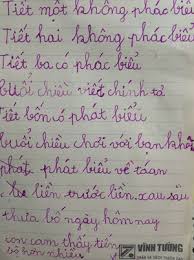 Tiết một không phác biểu
Tiết hai không phác biểu
Tiết ba có phác biểu
Cuối chiều viết chính tả
Tiết bốn có phát biểu
buổi chiều chơi với bạn
phát phát biểu về toán
liền trước liền sau
thưa bố ngày hôm nay
con cam thấy tiến
bộ hơn nhiều
VĨNH TƯỜNG